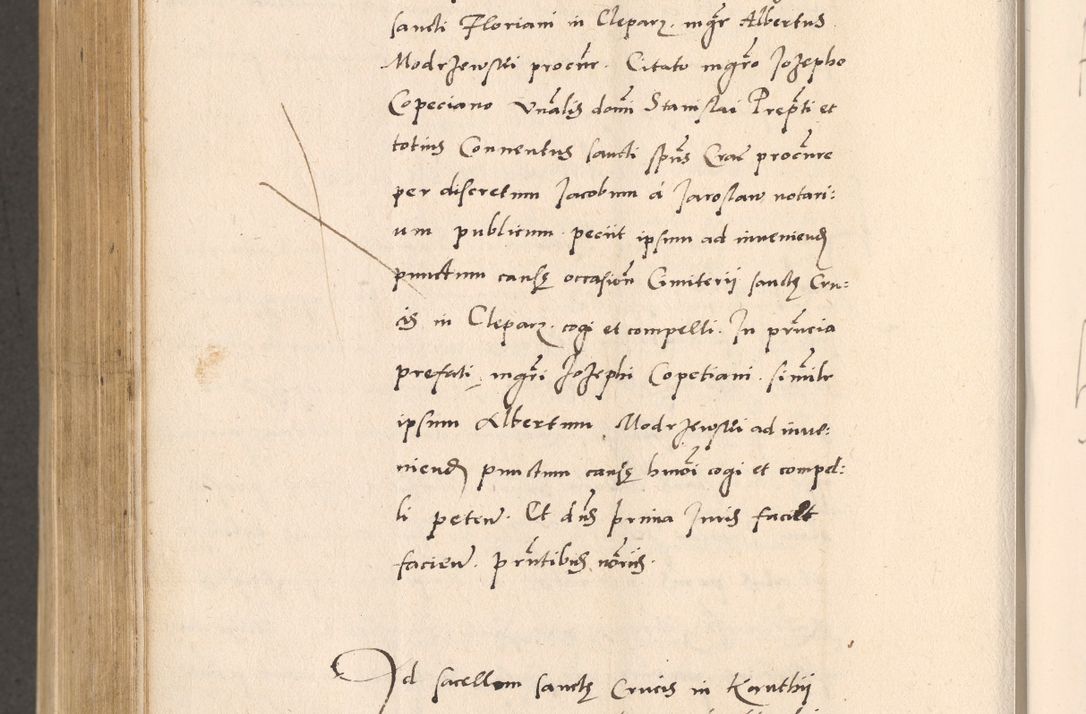 sancti Floriani in Cleparz. mgr Albertus
Modrzewski procur. Citato mgro Jozepho
Copeciano vnalis domi Stanislai Prepti et
totius Conuentus sancti spus Crac procure
per discretum Jacobum a Jaroslaw notari:
um publicum peciit ipsum ad inueniend
punctum causę occasion Cimiterii sanctę Cru:
cis in Cleparz. cogi et compelli. In prncia
prefati mgri Jozephi Copetiani. simile
ipsum Albertum Modrzewski ad inue:
niend punctum causę hmoi cogi et compel:
li peten. Et dns prima Juris facit
facien. prntibus noriis.
Ad sacellum sanctę Crucis in Koruthii